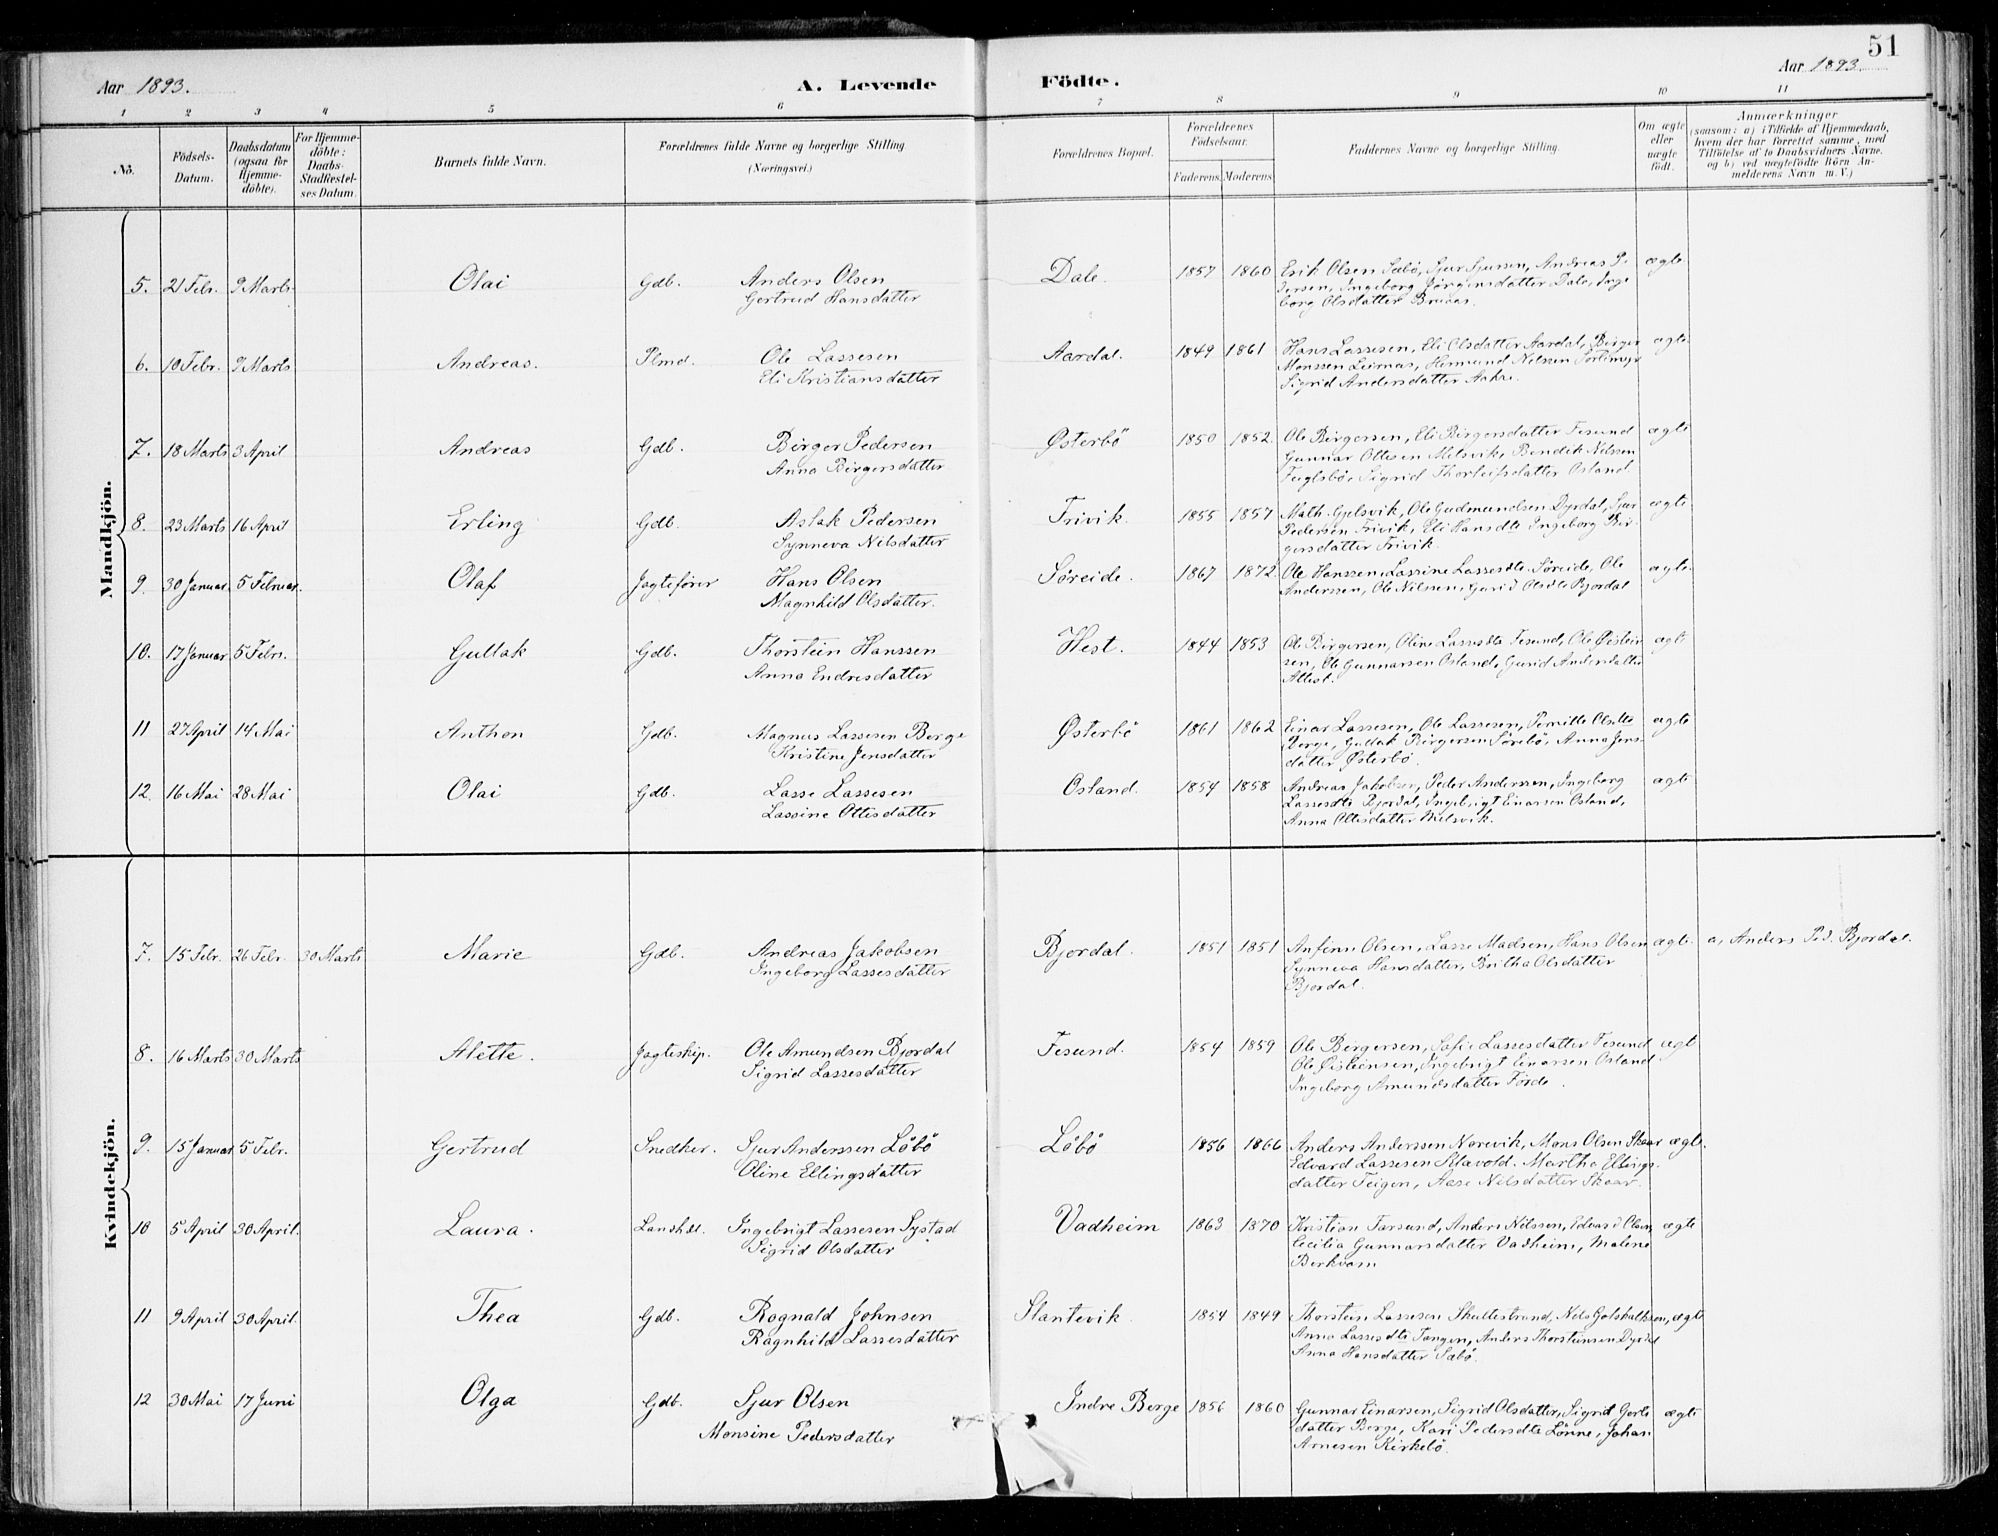 51
Aar 1893.
A. Levende Födte.
Aar 1893.
1 2 3 4 5 6 7 8 9 10 11
No.
Födsels-Datum.
Daabsdatum (ogsaa for Hjemme-döbte).
For Hjemme-döbte: Daabs-Stadfæstel-ses Datum.
Barnets fulde Navn.
Forældrenes fulde Navne og borgerlige Stilling (Næringsvei.)
Forældrenes Bopæl.
Forældrenes Fødselsaar.
Faderens. Moderens.
Faddernes Navne og borgerlige Stilling.
Om ægte eller uægte födt.
Anmærkninger
(saasom: a) i Tilfælde af Hjemmedaab,
hvem der har forrettet samme, med
Tilföielse af to Daabsvidners Navne.
og b) ved uægtefödte Börn An-
melderens Navn m. V.)
Mandkjön.
5. 21 Febr. 9 Marts Olai Gdb. Anders Olsen Dale. 1857 1860 Erik Olsen Sæbö, Sjur Sjursen, Andreas P. ægte
Gertrud Hansdatter dersen, Ingeborg Jörgensdatter Dale, Inge
borg Olsdatter Bruaas.
6. 10 Febr. 9 Marts Andreas. Plmd. Ole Lassesen Aardal. 1849 1861 Hans Lassesen, Eli Olsdatter Aardal, Birger ægte
Eli Kristiansdatter Monssen Leirnas, Hermund Nilssen
Sigrid Andersdatter Aakre.
7. 18 Marts 3 April Andreas Gdb. Birger Pedersen Østerbö 1850 1852. Ole Birgersen, Eli Birgersdatter Tesund ægte
Anna Birgersdatter Gunnar Ottesen Melsvik, Bendik Nilssen
Fuglsbö, Sigrid Thorleifsdatter Osland
8. 23 Marts 16 April Erling Gdb. Aslak Pedersen Trivik. 1855 1857 Math. Gjelsvik, Ole Gudmundsen Dyrdal, Sjur ægte
Synneva Nilsdatter Pedersen Trivik, Eli Hansdtr Ingeborg Bir-
gersdatter Trivik.
9. 30 Januar. 5 Februar. Olaf Jagtefører Hans Olsen Søreide. 1867 1872 Ole Hanssen, Lassine Lassesdtr Søreide, Ole ægte.
Magnhild Olsdatter. Anderssen, Ole Nilssen, Gurid Olsdtr Bjordal
10. 17 Januar 5 Febr. Gullak Gdb. Thorstein Hanssen Hest. 1844 1853 Ole Birgersen, Oline Lassesdtr Tesund, Ole Øistein ægte
Anna Endresdatter sen, Ole Gunnarsen Osland, Gurid Andersdatter
11 27 April 14 Mai Anthon Gdb. Magnus Lassesen Berge Østerbö 1861 1862 Einar Lassesen, Ole Lassesen, Pernille Olsdtr ægte
Kristine Jensdatter Berge, Gullak Birgersen Sörebö, Anna Jens-
datter Østerbö.
12. 16 Mai 28 Mai Olai Gdb. Lasse Lassesen Osland. 1854 1858 Andreas Jakobsen, Peder Anderssen, Ingeborg ægte
Lassine Ottesdatter Lassesdtr Bjordal, Ingebrigt Einarsen Osland,
Anna Ottesdatter Melsvik.
Kvindekjön.
7. 15 Febr. 26 Febr. 30 Marts Marie Gdb. Andreas Jakobsen Bjordal. 1851 1851 Anfinn Olsen, Lasse Madsen, Hans Olsen ægte. a, Anders Ped. Bjordal.
Ingeborg Lassesdatter Synneva Hansdatter, Britha Olsdatter
Bjordal.
8. 16 Marts 30 Marts Alette. Jagteskip. Ole Amundsen Bjordal Tesund. 1854 1859 Ole Bergersen, Sofie Lassesdatter Tesund ægt
Sigrid Lassesdatter Ole Øisteinsen, Ingebrigt Einarsen Osland
Ingeborg Amundsdatter Førde.
9. 15 Januar 5 Febr. Gertrud Snedker. Sjur Anderssen Löbö Löbö 1856 1866 Anders Anderssen Norevik, Mons Olsen Skaar ægte.
Oline Ellingsdatter Edvard Lassesen Klævold. Martha Ellings
datter Teigen, Aase Nilsdatter Skaar.
10 5 April 30 April. Laura. Lanshdl. Ingebrigt Lassesen Systad Vadheim 1863 1870 Kristian Farsund, Anders Nilssen, Edvard Olsen ægte
Sigrid Olsdatter Cecilia Gunnarsdatter Vadheim, Malene
Berkvam
11 9 April 30 April. Thea Gdb. Rognald Johnsen Slantevik 1854 1849 Thorstein Lassesen Skullestrand, Nils Gotskalksen, ægte
Ragnhild Lassesdatter Anna Lassesdtr Tangen, Anders Thorsteinsen Dyrdal
Anna Hansdatter Sæbö.
12 30 Mai 17 Juni Olga Gdb. Sjur Olsen Indre Berge 1856 1860 Gunnar Einarsen, Sigrid Olsdatter, Sigrid Gjerts ægte
Monsine Pedersdatter datter Berge, Kari Pedersdtr Lönne, Johan
Arnesen Kirkebö.